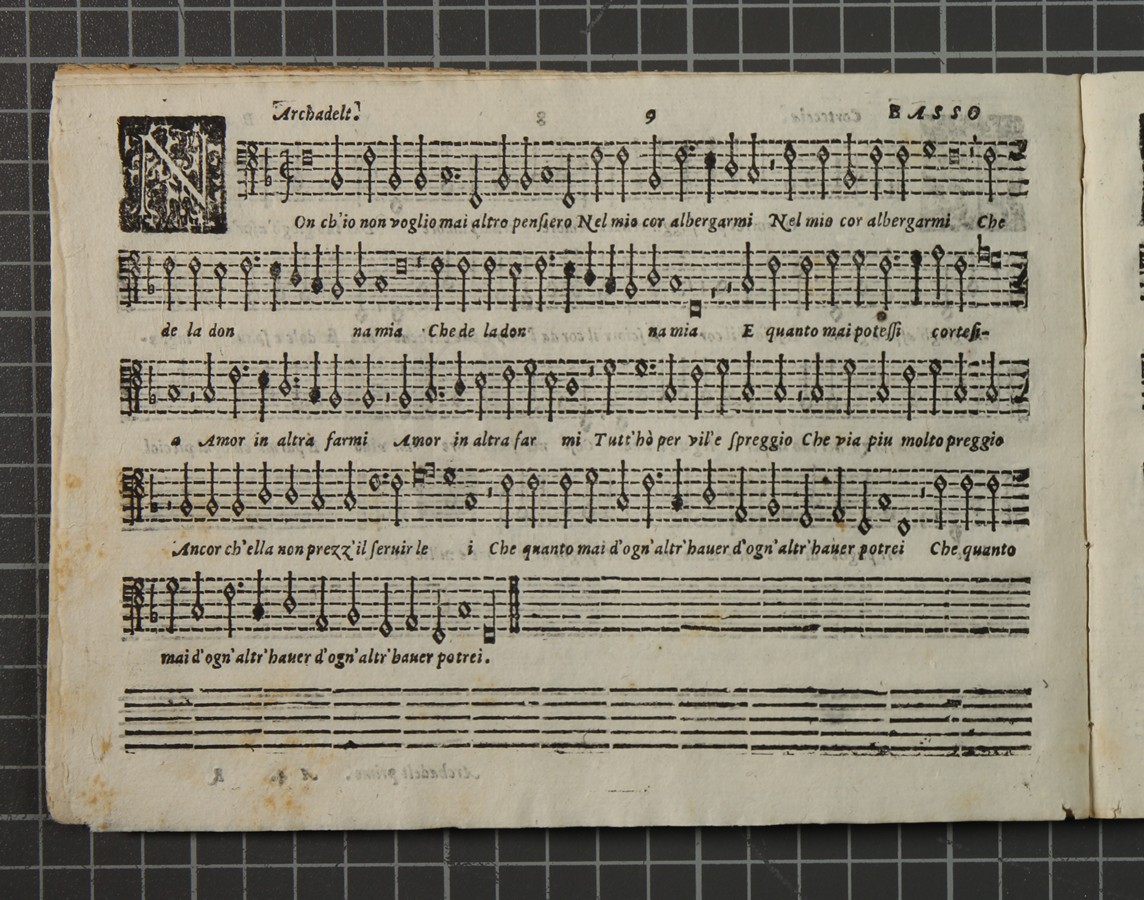 Archadelt. 9 BASSO
NOn ch'io non voglio mai altro pensiero Nel mio cor albergarmi Nel mio cor albergarmi Che
de la don na mia Che de la don na mia E quanto mai potessi cortesi-
a Amor in altra farmi Amor in altra far mi Tutt'hò per vil'e spreggio Che via piu molto preggio
Ancor ch'ella non prezz'il seruir le i Che quanto mai d'ogn'altr'hauer d'ogn'altr'hauer potrei Che quanto
mai d'ogn'altr'hauer d'ogn'altr'hauer potrei.